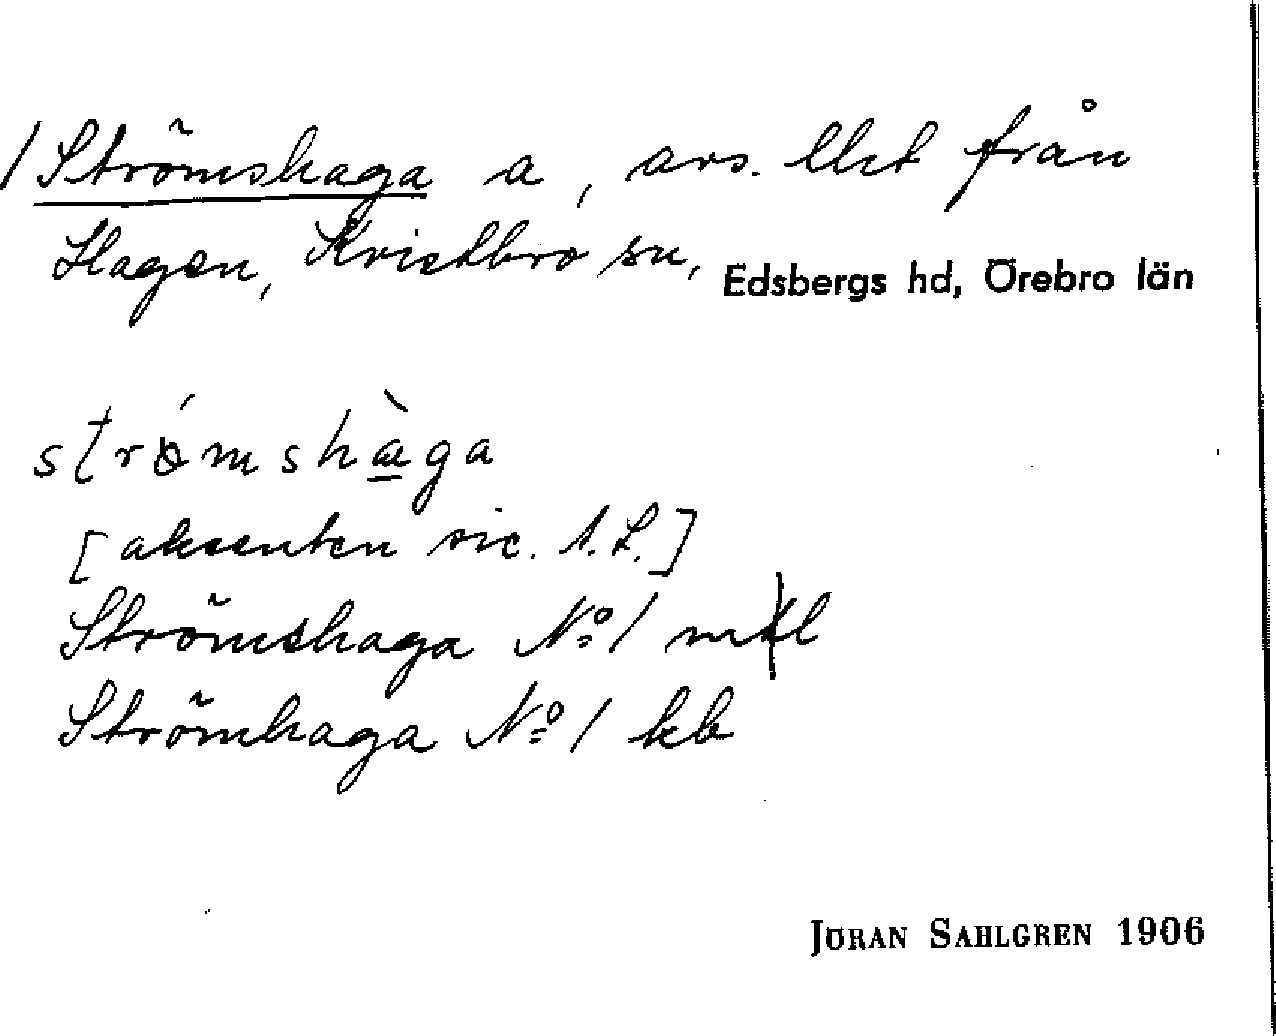 / Strömshaga a, avs. l!het från
Hagen, Kvistbro sn, Edsbergs hd, Örebro län
strǿmshàga
[aksenten sic. I.L.]
Strömshaga No 1 mtl
Strömhaga No 1 kb
JÖRAN SAHLGREN 1906